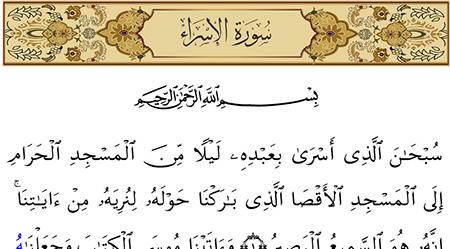 سُورَةُ الإِسْرَاء
بِسْمِ اللَّهِ الرَّحْمَٰنِ الرَّحِيمِ
سُبْحَٰنَ ٱلَّذِىٓ أَسْرَىٰ بِعَبْدِهِۦ لَيْلًا مِّنَ ٱلْمَسْجِدِ ٱلْحَرَامِ
إِلَى ٱلْمَسْجِدِ ٱلْأَقْصَا ٱلَّذِى بَٰرَكْنَا حَوْلَهُۥ لِنُرِيَهُۥ مِنْ ءَايَٰتِنَآ ۚ
إِنَّهُۥ هُوَ ٱلسَّمِيعُ ٱلْبَصِيرُ ﴿١﴾ وَءَاتَيْنَا مُوسَى ٱلْكِتَٰبَ وَجَعَلْنَٰهُ